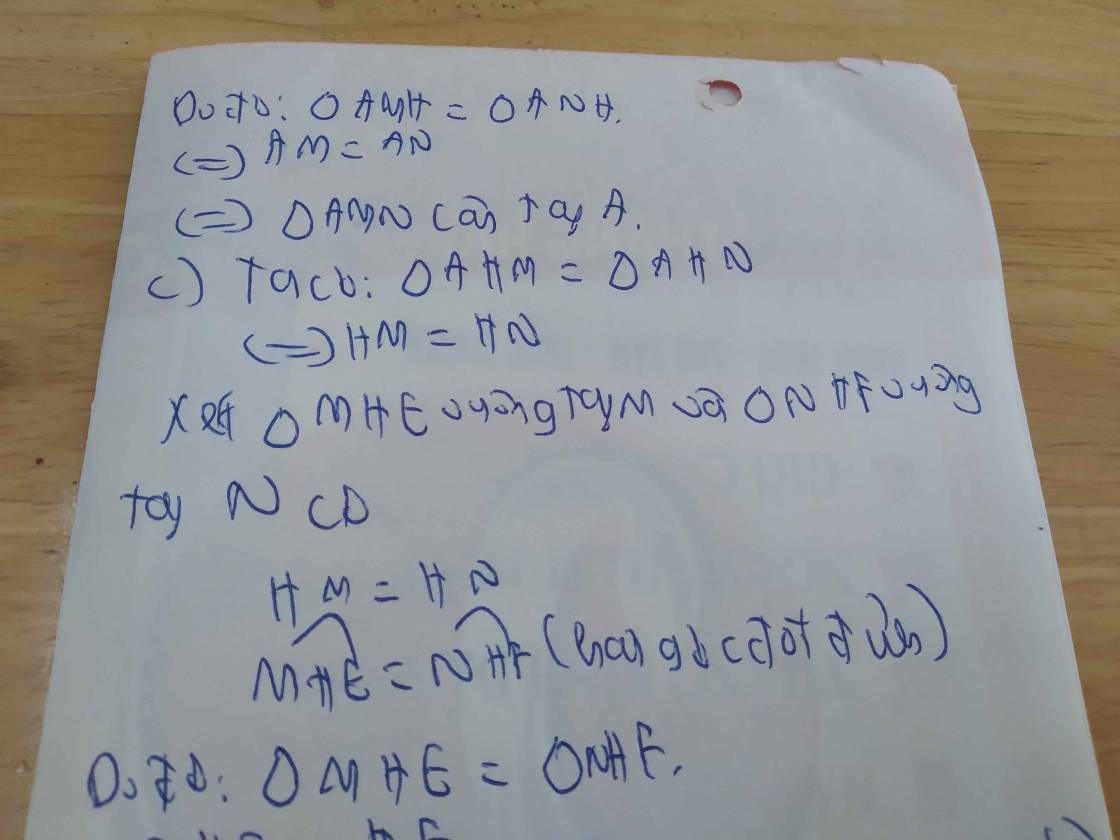 Do đó: Δ AMH = Δ ANH.
(=) AM = AN
(=) Δ AMN cân tại A.
c) Ta có: Δ AHM = Δ AHN
(=) HM = HN
Xét Δ MHE vuông tại M và Δ NHF vuông
tại N có
HM = HN
MHE = NHF (hai góc đối đỉnh)
Do đó: Δ MHE = Δ NHF.